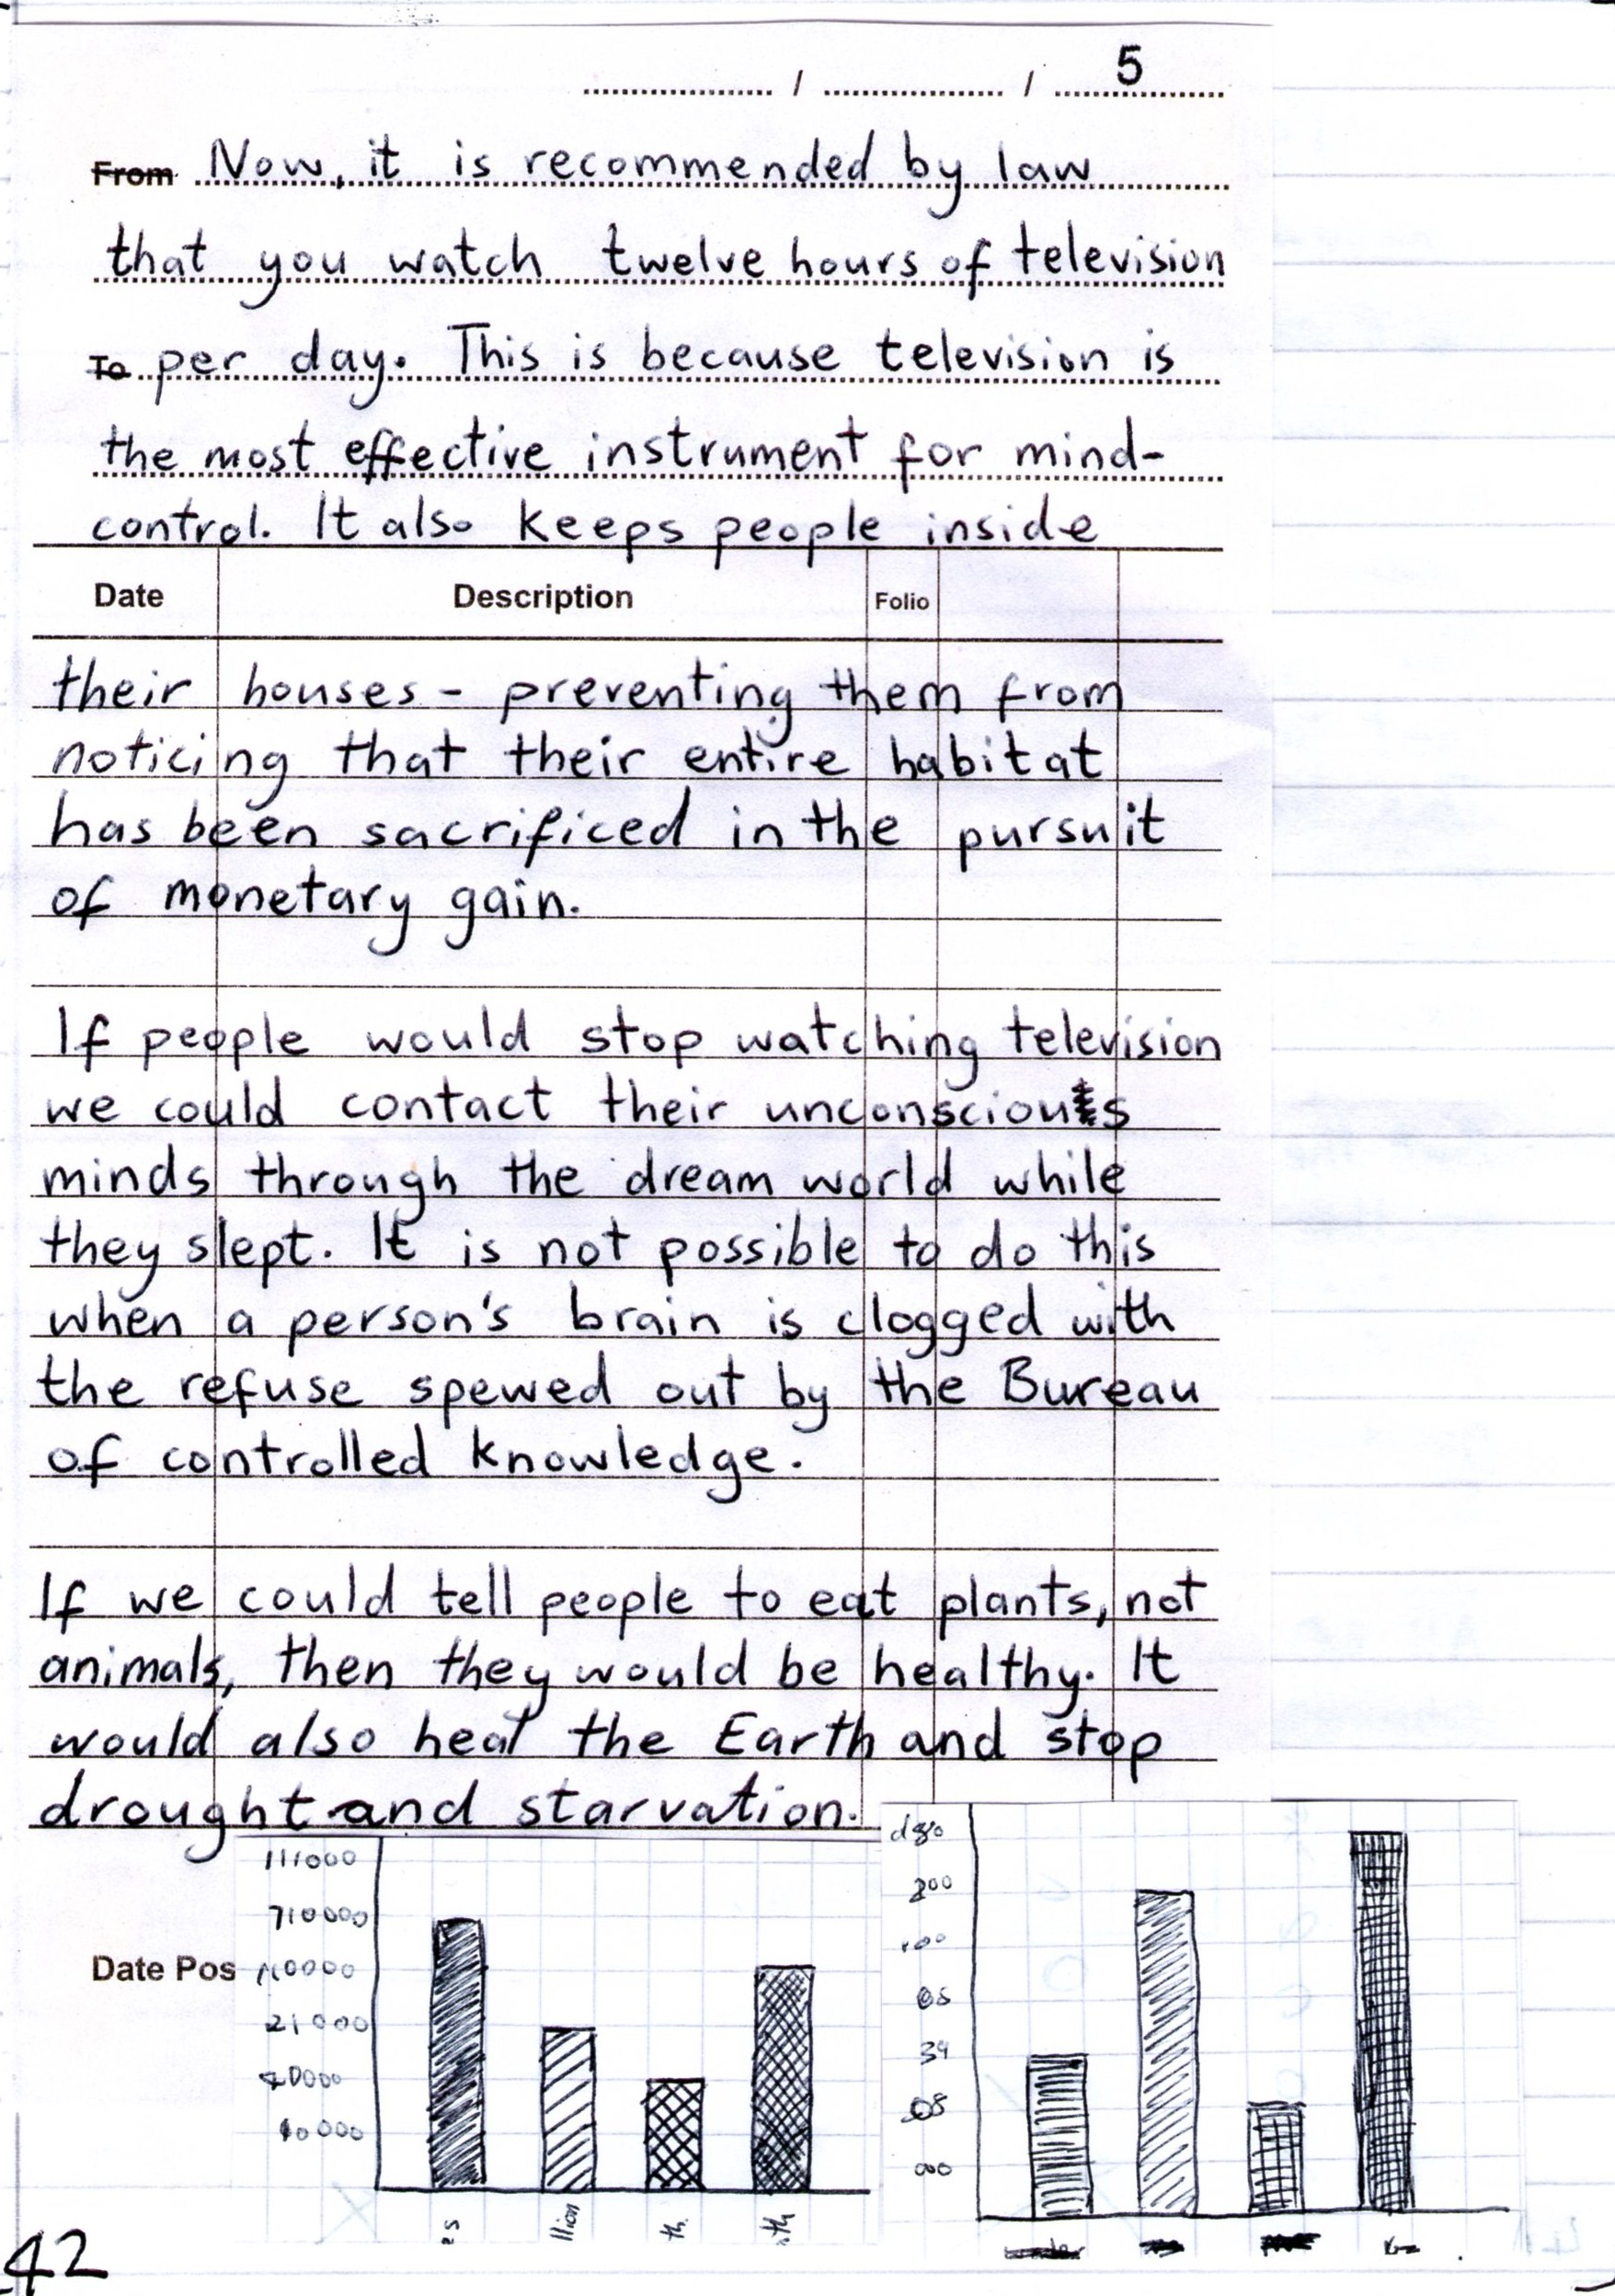 / / 5
From Now, it is recommended by law
that you watch twelve hours of television
To per day. This is because television is
the most effective instrument for mind-
control. It also keeps people inside
Date Description Folio
their houses - preventing them from
noticing that their entire habitat
has been sacrificed in the pursuit
of monetary gain.
If people would stop watching television
we could contact their unconscious
minds through the dream world while
they slept. It is not possible to do this
when a person's brain is clogged with
the refuse spewed out by the Bureau
of controlled knowledge.
If we could tell people to eat plants, not
animals, then they would be healthy. It
would also heal the Earth and stop
drought and starvation.
111000
710000
Date Pos
21000
llion
th
34
08
42